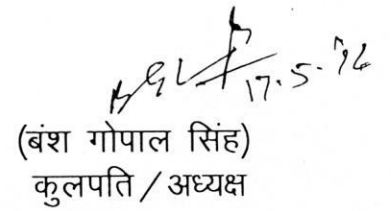 17.5.
(बंश गोपाल सिंह)
कुलपति / अध्यक्ष